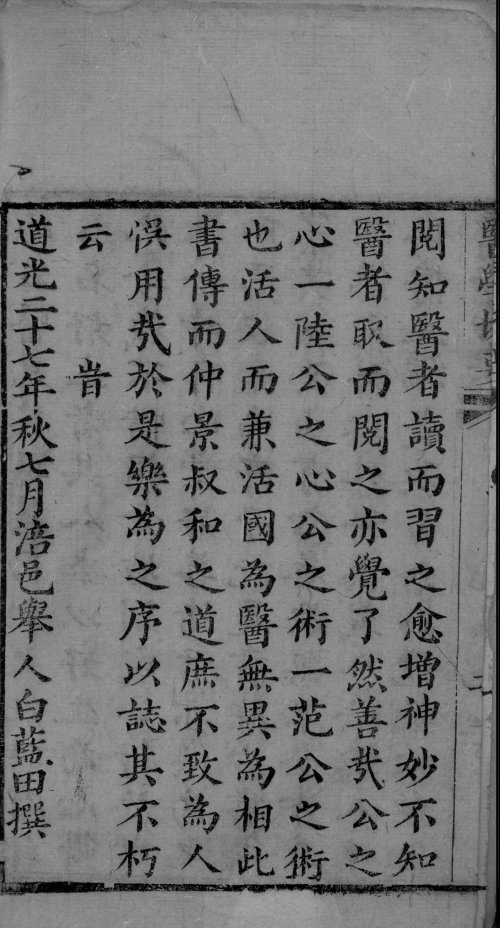 閱知醫者讀而習之愈增神妙不知
醫者取而閱之亦覺了然善哉公之
心一陸公之心公之術一范公之術
也活人而兼活國為醫無異為相此
書傳而仲景叔和之道庶不致為人
悞用哉於是樂為之序以誌其不朽
云 旹
道光二十七年秋七月涪邑舉人白藍田撰